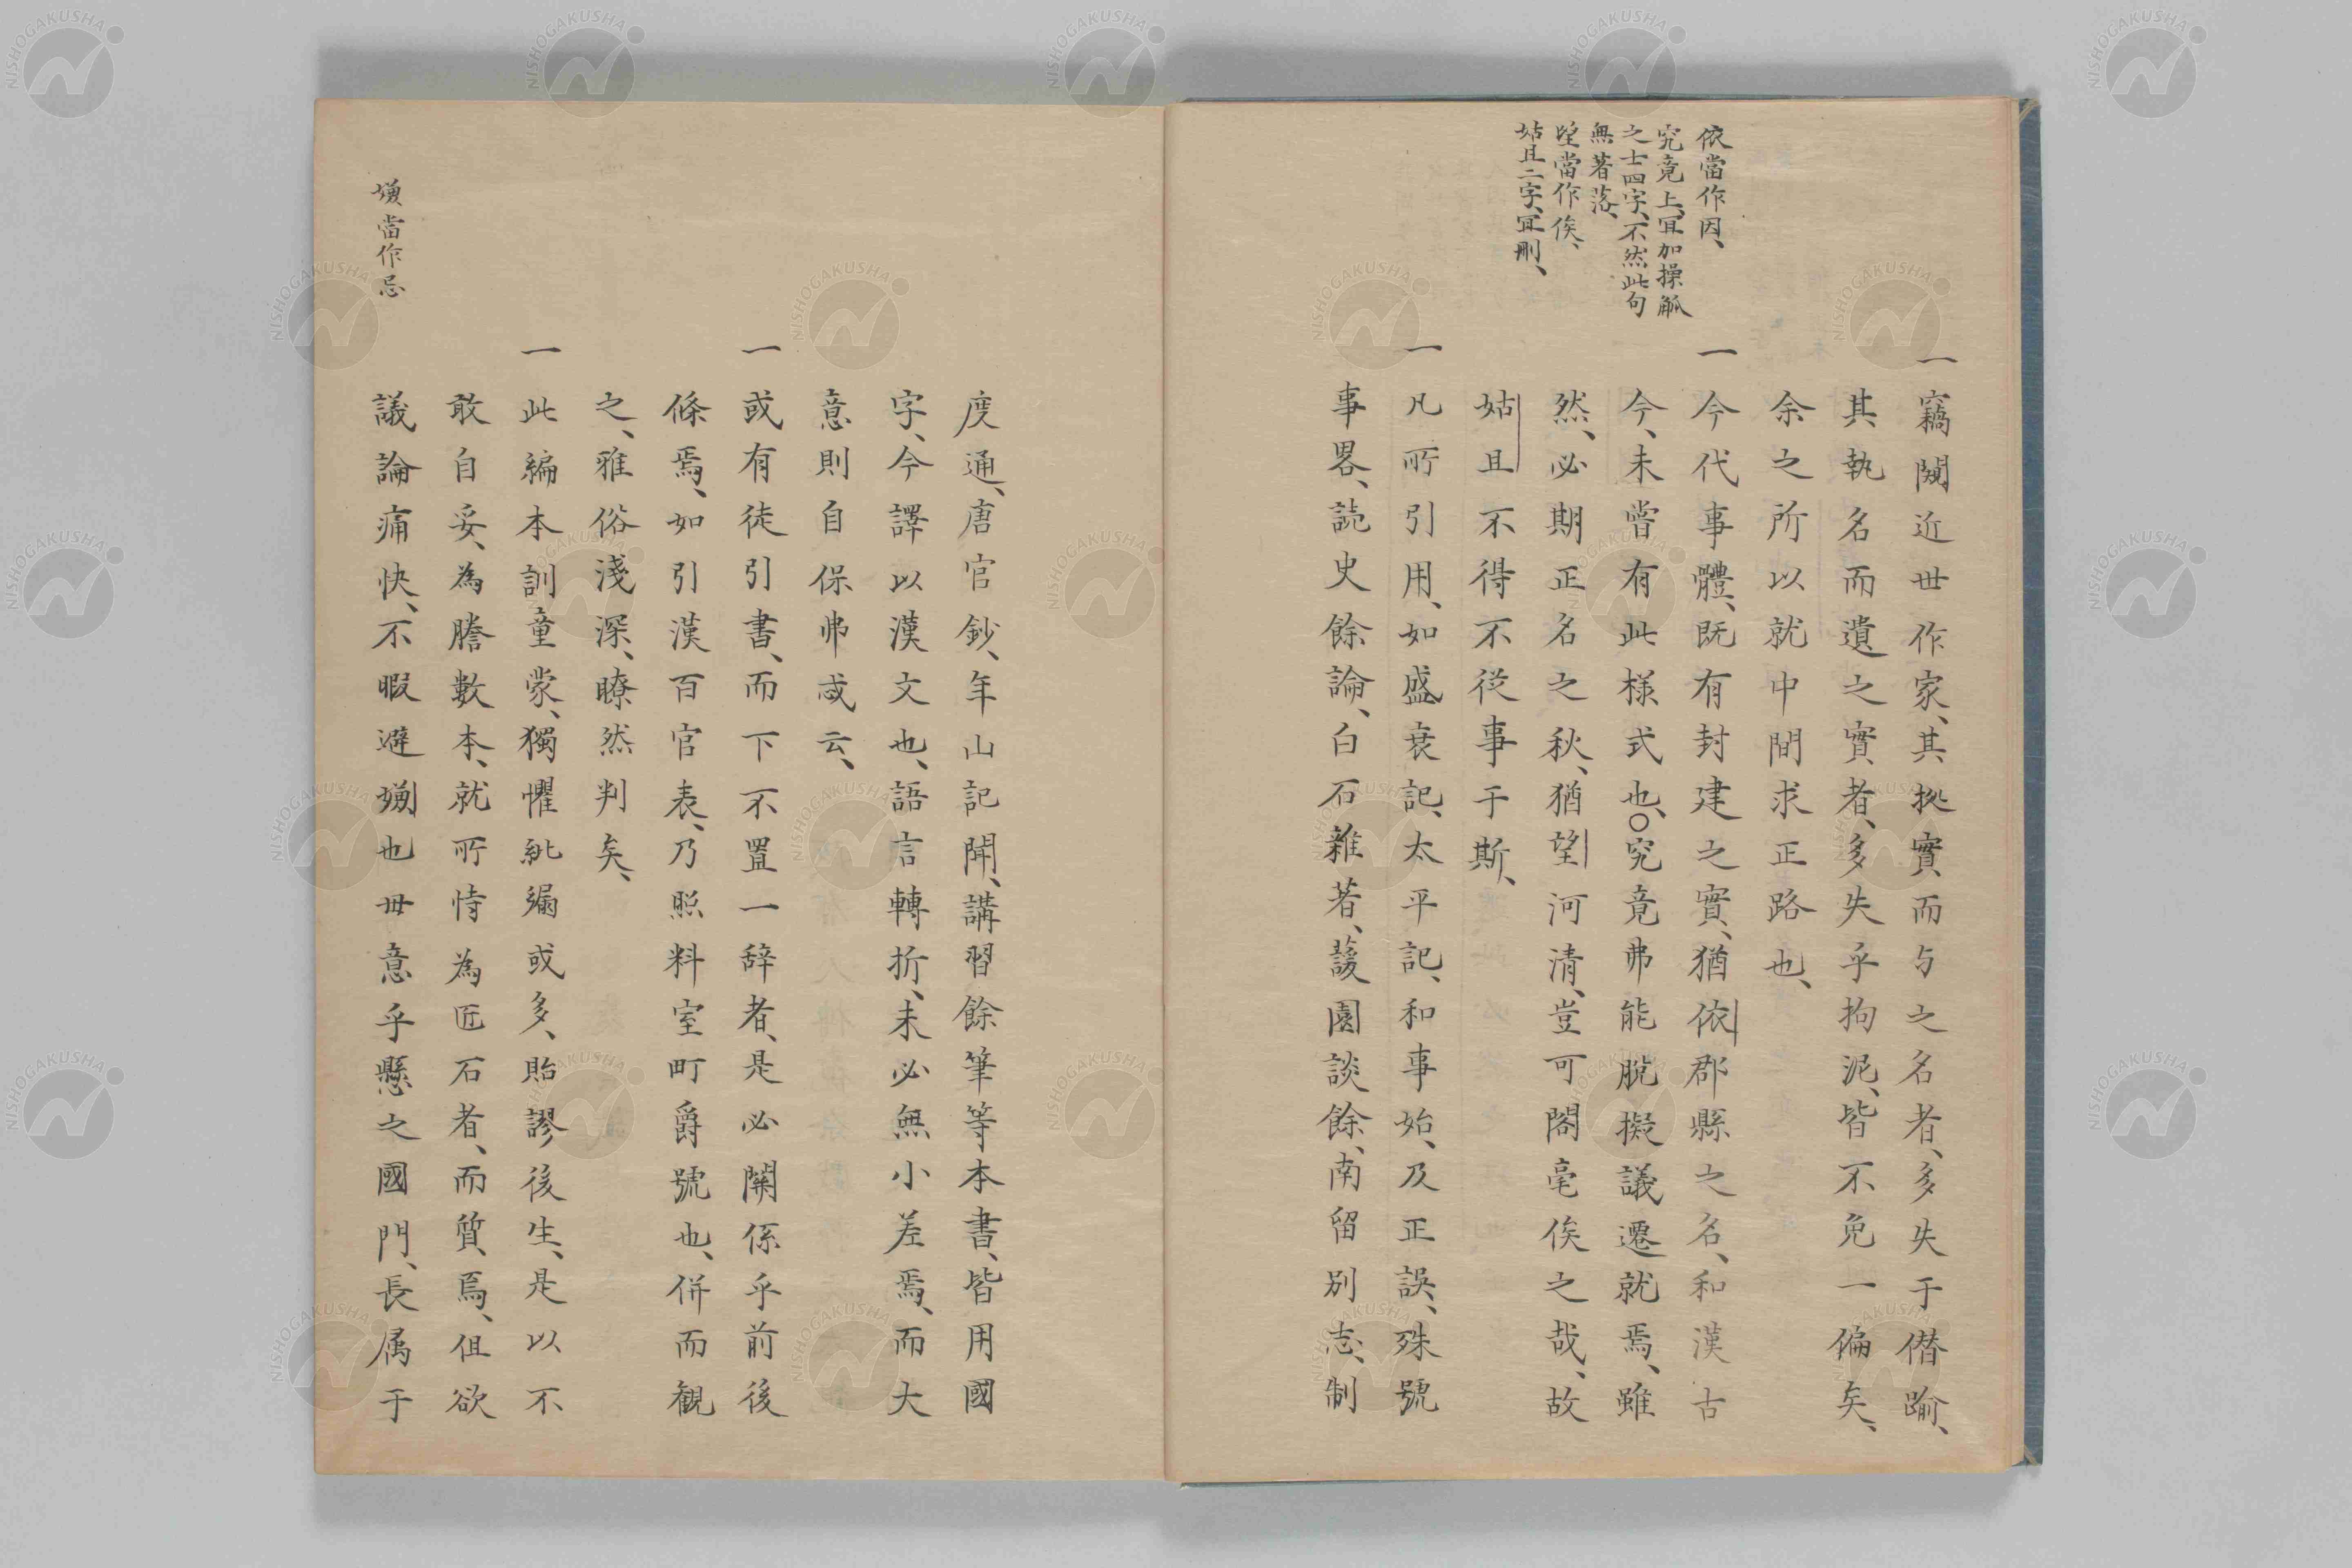 依當作因、
究竟上、冝加操觚
之士四字、不然此句
無著落、
望當作俟、
姑且二字、冝刪、
一竊閱近世作家、其拠實而与之名者、多失于僣踰、
其執名而遺之實者、多失乎拘泥、皆不免一偏矣、
余之所以就中間求正路也、
一今代事體、既有封建之實、猶依郡縣之名、和漢古
今、未嘗有此様式也、○究竟弗能脫擬議遷就焉、雖
然、必期正名之秋、猶望河清、豈可閣毫俟之哉、故
姑且不得不従事于斯、
一凡所引用、如盛衰記、太平記、和事始、及正誤、殊號
事畧、読史餘論、白石雜著、蘐園談餘、南留別志、制
度通、唐官鈔、年山記聞、講習餘筆等本書、皆用國
字、今譯以漢文也、語言轉折、未必無小差焉、而大
意則自保弗忒云、
一或有徒引書、而下不置一辞者、是必関係乎前後
條焉、如引漢百官表、乃照料室町爵號也、併而観
之、雅俗淺深、瞭然判矣、
一此編本訓童蒙、獨懼紕漏或多、貽謬後生、是以不
敢自妥、為謄數本、就所恃為匠石者、而質焉、但欲
議論痛快、不暇避嫌也毋意乎懸之國門、長属于
嫌當作忌